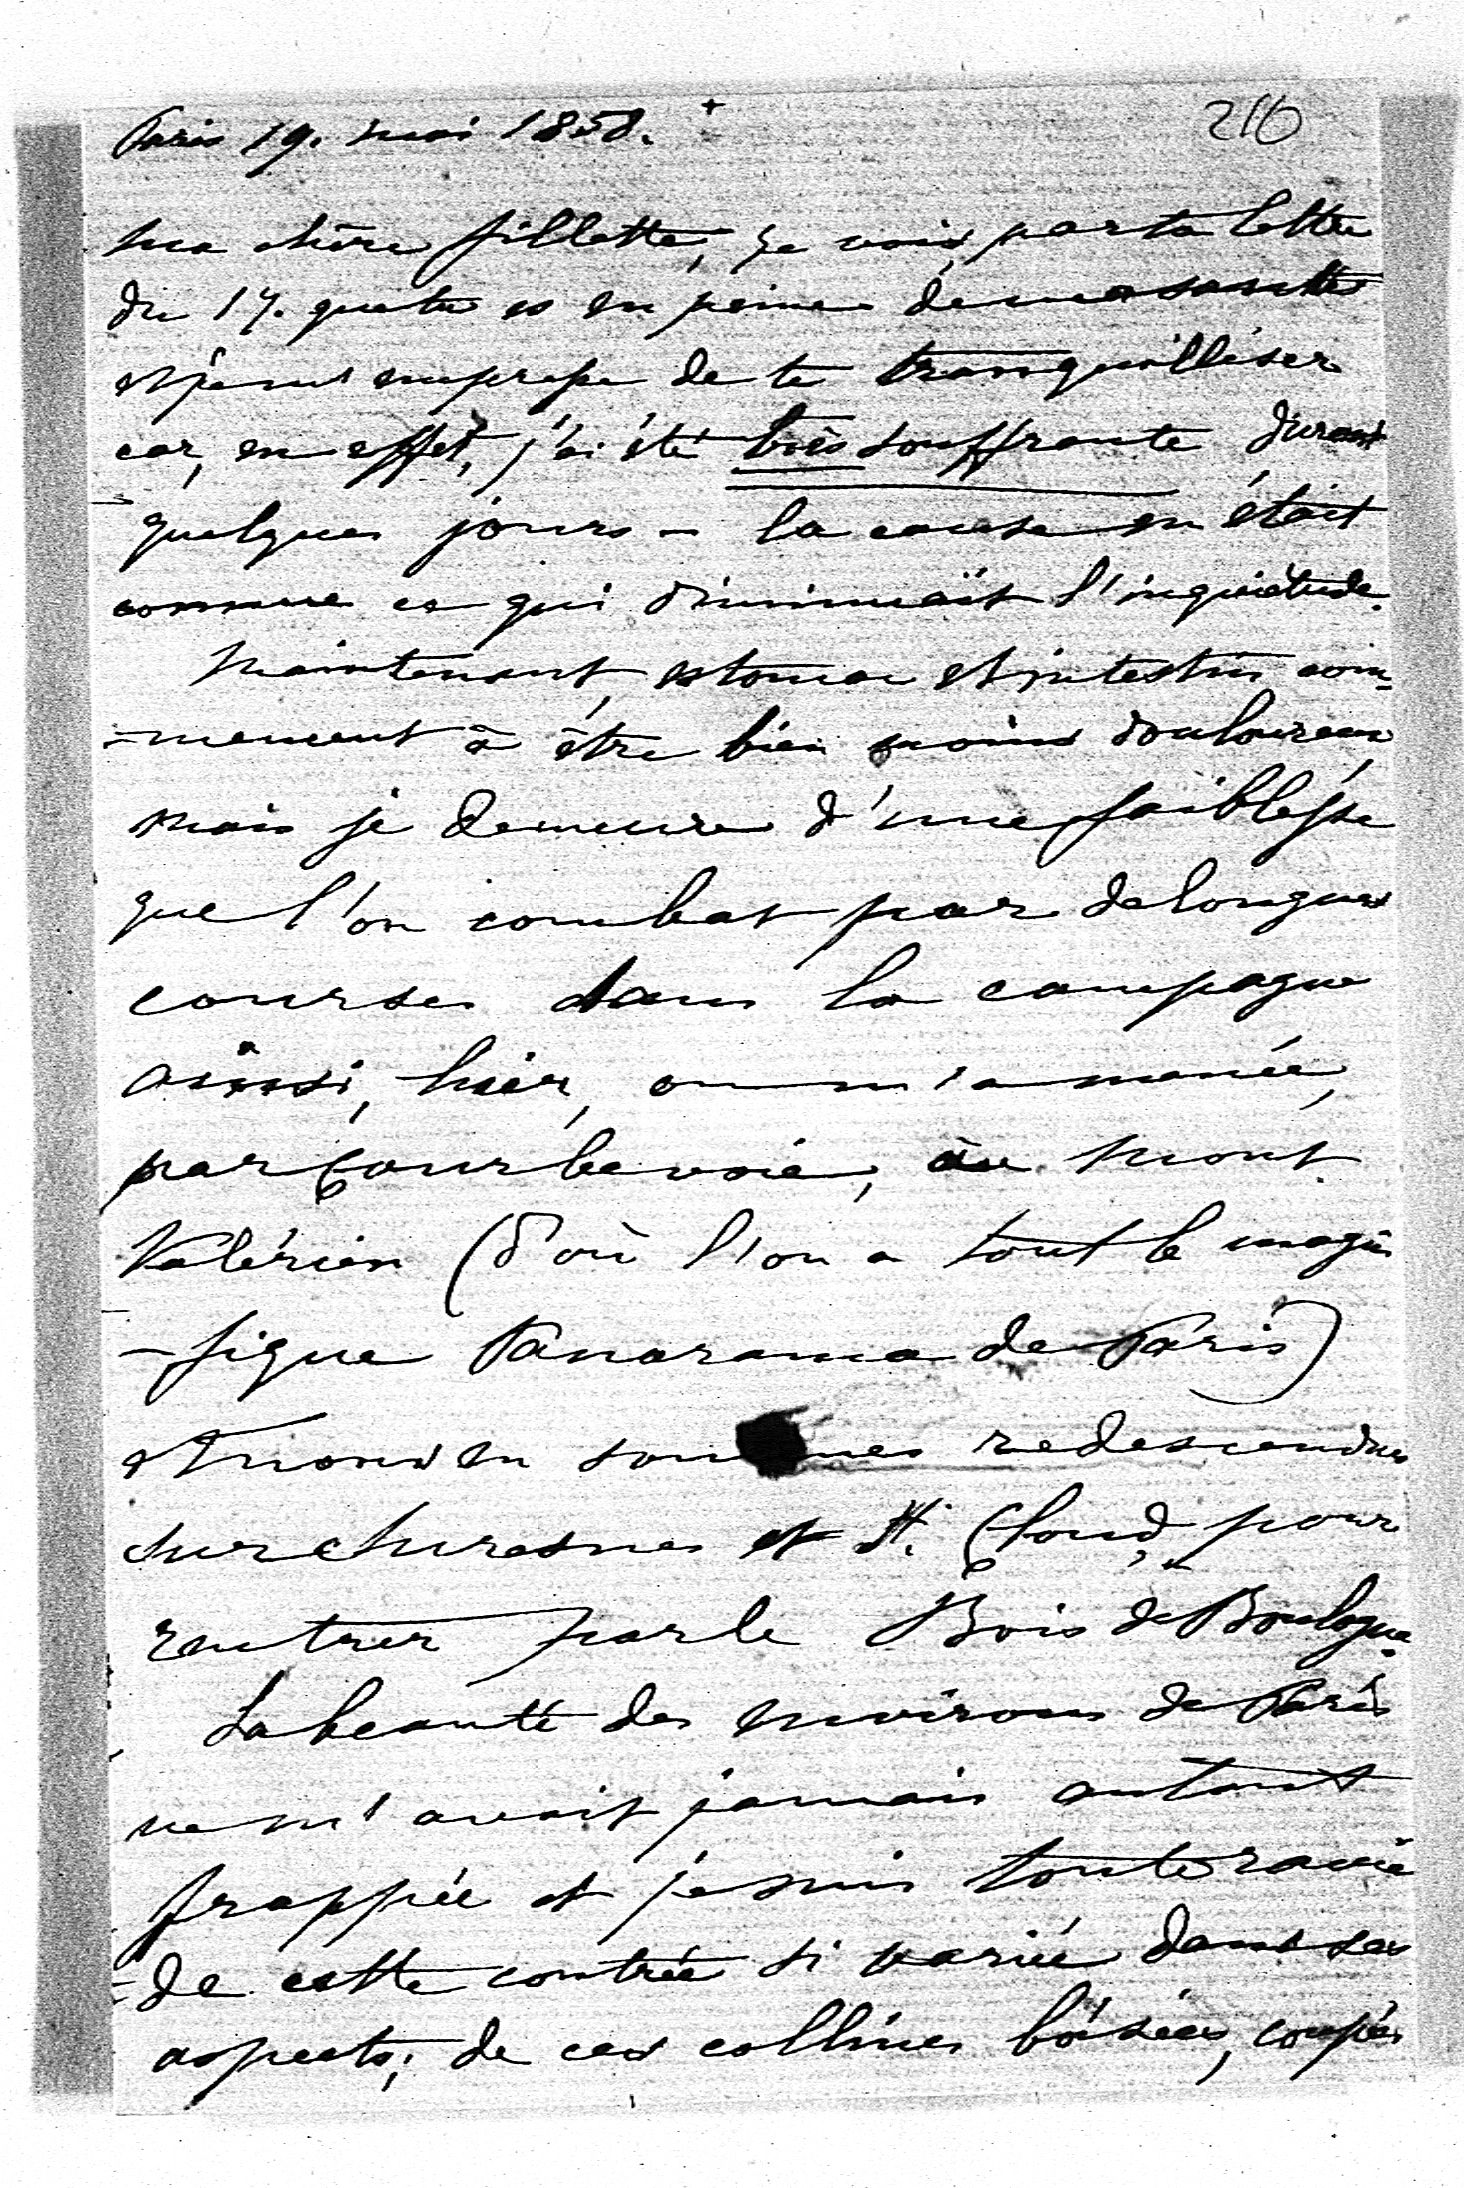 Paris 19. mai 1858. +
210
Ma chère fillette, je vois par ta lettre
du 17. que tu es en peine de ma santé
et je m'empresse de te tranquilliser
car, en effet, j'ai été très souffrante durant
quelques jours - la cause en était
connue ce qui diminuait l'inquiétude.
Maintenant, estomac et intestins com-
-mencent à être bien moins douloureux,
mais je demeure d'une faiblesse
que l'on combat par de longues
courses dans la campagne
ainsi, hier, on m'a menée,
par Courbevoie, au Mont
Valérien (d'où l'on a tout le magni
-fique Panorama de Paris)
et nous en sommes redescendus
sur Suresnes et St. Cloud, pour
rentrer par le Bois de Boulogne.
La beauté des environs de Paris
ne m'avait jamais autant
frappée et je suis toute ravie
de cette contrée si variée dans ses
aspects; de ces collines boisées, coupées